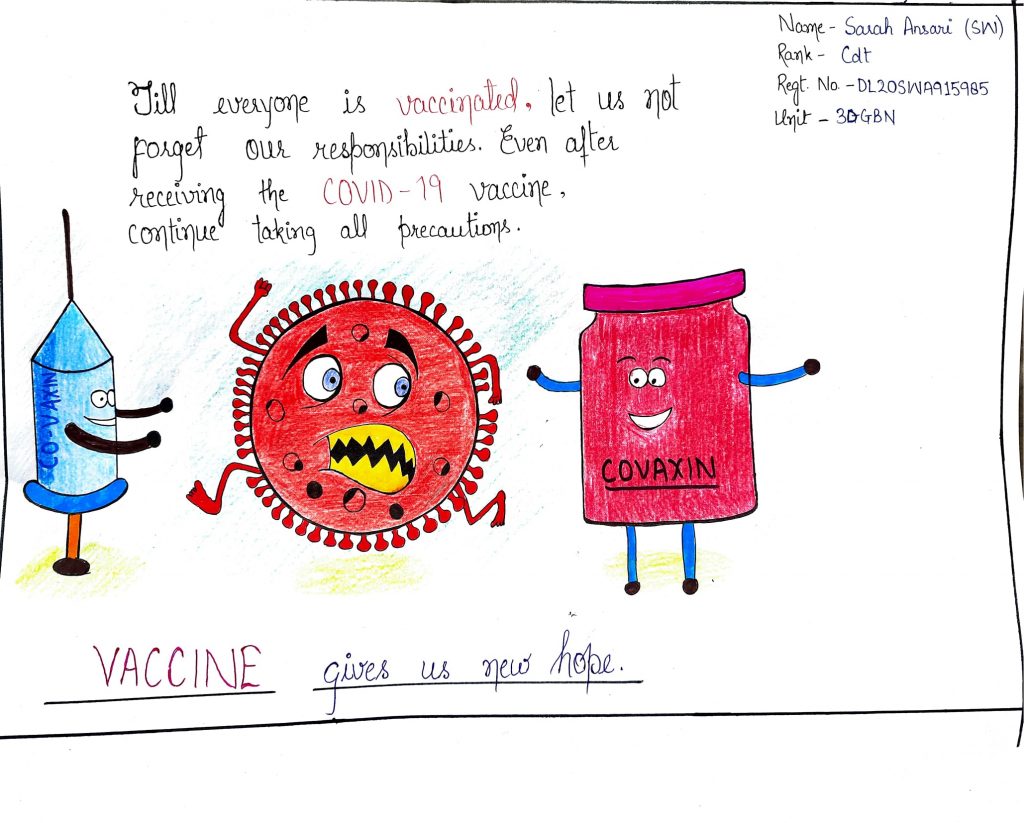 Name - Sarah Ansari (SW)
Rank - Cdt
Regt. No. - DL20SWA915985
Unit - 3DGBN
Till everyone is vaccinated, let us not
forget our responsibilities. Even after
receiving the COVID-19 vaccine,
continue taking all precautions.
CO-VAXIN
COVAXIN
VACCINE gives us new hope.